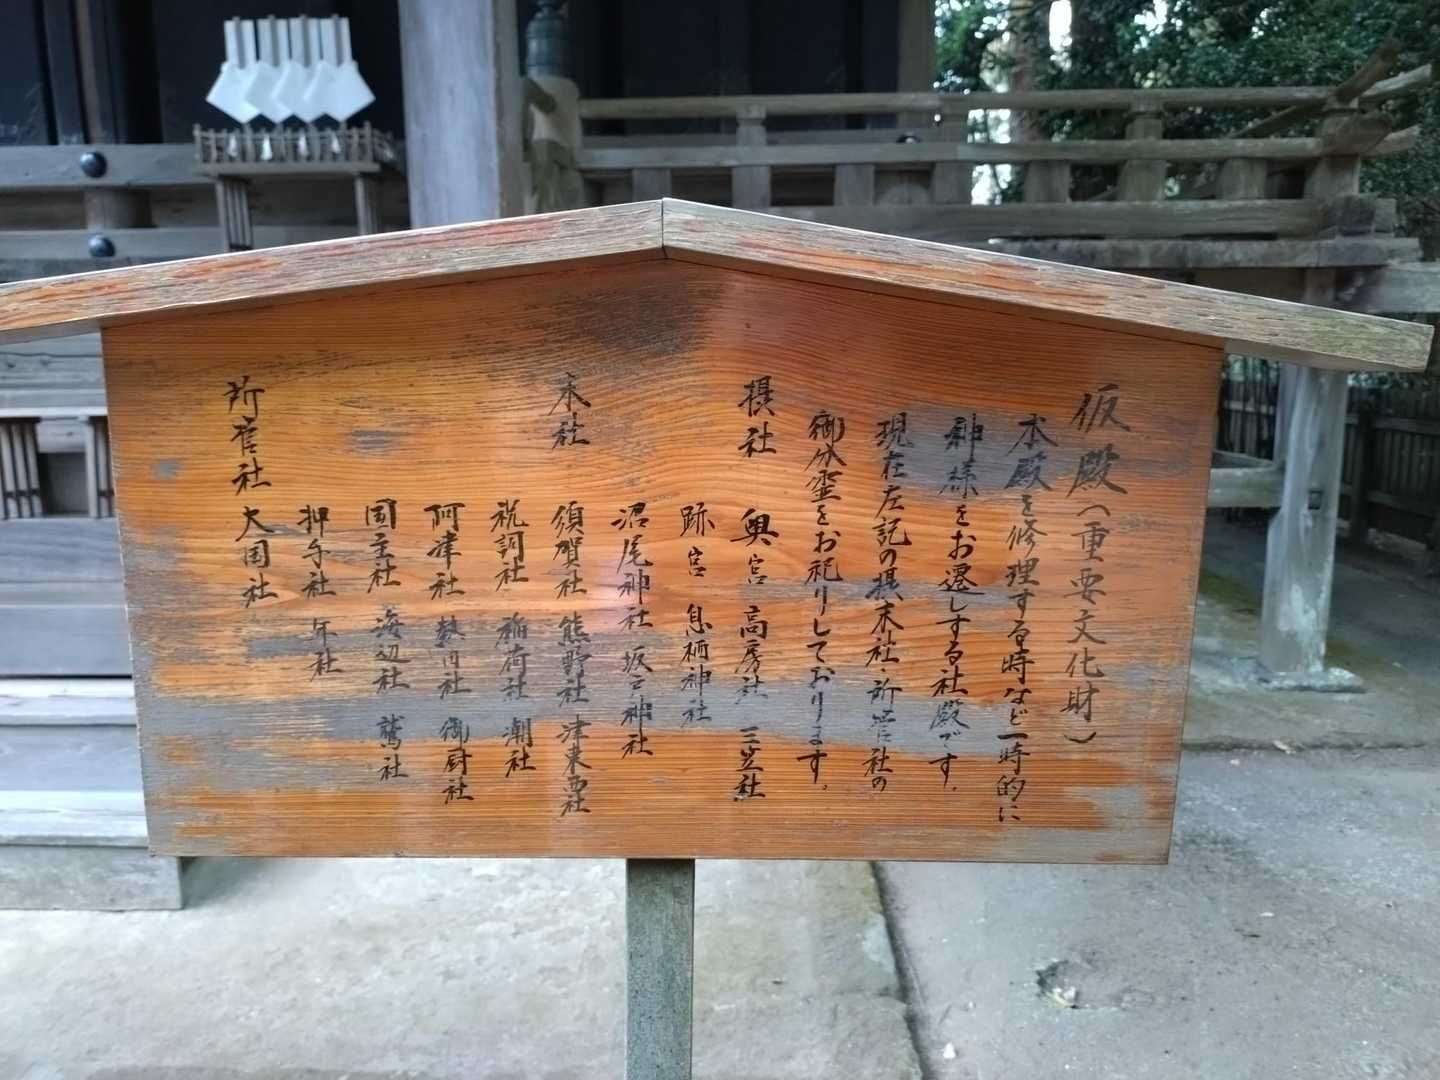 仮殿(重要文化財)
本殿を修理する時など一時的に
神様をお遷しする社殿です。
現在左記の摂末社・所管社の
御分霊をお祀りしております。
摂社 奥宮 高房社 三笠社
跡宮 息栖神社
沼尾神社 坂戸神社
末社 須賀社 熊野社 津東西社
祝詞社 稲荷社 潮社
阿津社 熱田社 御厨社
国主社 海辺社 鷲社
押手社 年社
所管社 大国社